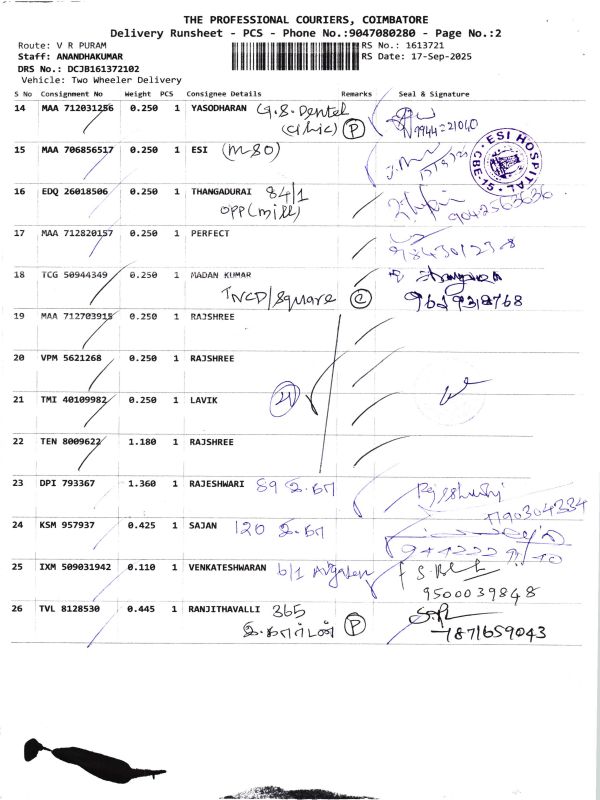 THE PROFESSIONAL COURIERS, COIMBATORE
Delivery Runsheet - PCS - Phone No.:9047080280 - Page No.:2
Route: V R PURAM RS No.: 1613721
Staff: ANANDHAKUMAR RS Date: 17-Sep-2025
DRS No.: DCJB161372102
Vehicle: Two Wheeler Delivery
S No Consignment No Weight PCS Consignee Details Remarks Seal & Signature
14 MAA 712031256 0.250 1 YASODHARAN G.S. Dental
(clinic) P
15 MAA 706856517 0.250 1 ESI (MSO)
ESI HOSPITAL CBE-15
16 EDQ 26018506 0.250 1 THANGADURAI 84/1
OPP (mill) 9042563636
17 MAA 712820157 0.250 1 PERFECT
18 TCG 50944349 0.250 1 MADAN KUMAR
TNCD/Square C
19 MAA 712703915 0.250 1 RAJSHREE
20 VPM 5621268 0.250 1 RAJSHREE
21 TMI 40109982 0.250 1 LAVIK
22 TEN 8009622 1.180 1 RAJSHREE
23 DPI 793367 1.360 1 RAJESHWARI 89 உ.வீ
24 KSM 957937 0.425 1 SAJAN 120 உ.வீ
25 IXM 509031942 0.110 1 VENKATESHWARAN 6/1
9500039848
26 TVL 8128530 0.445 1 RANJITHAVALLI 365
P 7871659043